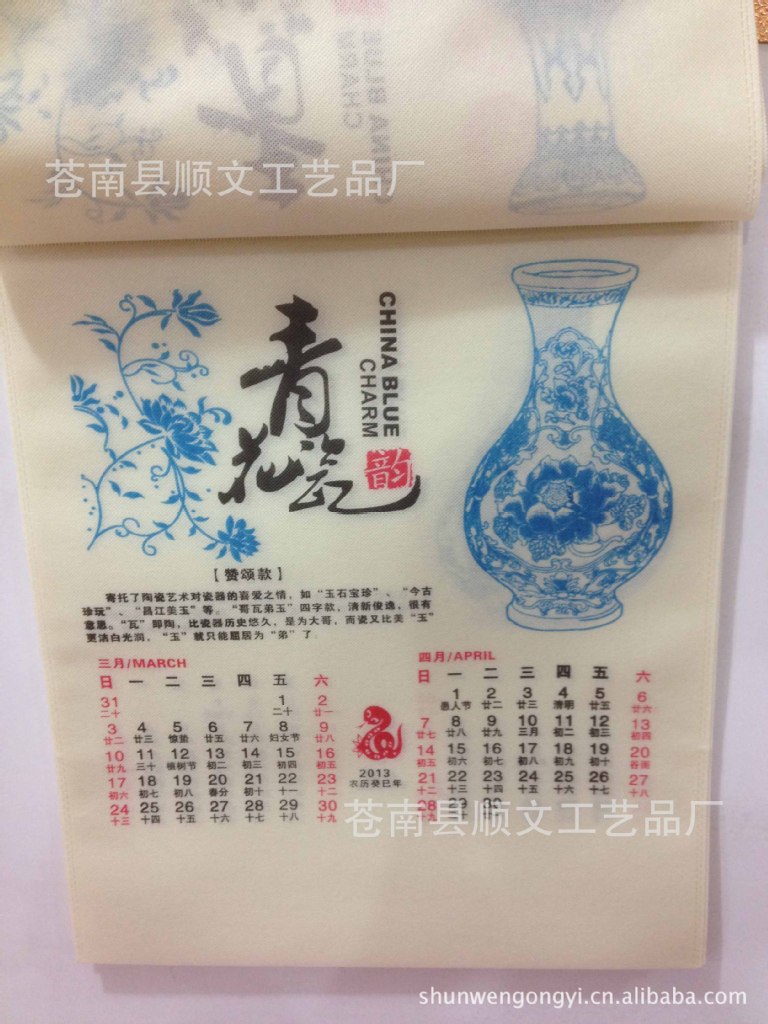 苍南县顺文工艺品厂
CHINA BLUE
CHARM
青
花瓷
韵
【赞颂款】
寄托了陶瓷艺术对瓷器的喜爱之情，如“玉石宝珍”、“今古
珍玩”、“昌江美玉”等。“哥瓦弟玉”四字款，清新俊逸，很有
意思。“瓦”即陶，比瓷器历史悠久，是为大哥，而瓷又比美“玉”
更洁白光润，“玉”就只能屈居为“弟”了
三月/MARCH
日 一 二 三 四 五 六
31 1 2
二十 二十 廿一
3 4 5 6 7 8 9
廿二 廿三 惊蛰 廿五 廿六 妇女节 廿八
10 11 12 13 14 15 16
廿九 三十 植树节 初二 初三 初四 初五
17 18 19 20 21 22 23
初六 初七 初八 春分 初十 十一 十二
24 25 26 27 28 29 30
十三 十四 十五 十六 十七 十八 十九
2013
农历癸巳年
四月/APRIL
日 一 二 三 四 五 六
1 2 3 4 5 6
愚人节 廿二 廿三 清明 廿五 廿六
7 8 9 10 11 12 13
廿七 廿八 廿九 三月 初二 初三 初四
14 15 16 17 18 19 20
初五 初六 初七 初八 初九 初十 谷雨
21 22 23 24 25 26 27
十二 十三 十四 十五 十六 十七 十八
28 29 30
十九 二十
苍南县顺文工艺品厂
shunwengongyi.cn.alibaba.com